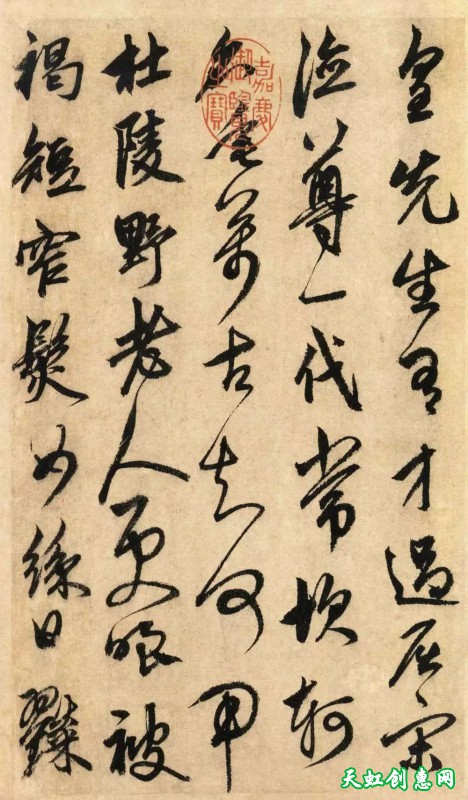 皇先生有才過屈宋
德尊一代常坎軻
名垂萬古知何用
杜陵野老人更嗤被
褐短窄鬢如絲日糴
嘉慶御覽之寶
天虹创惠网